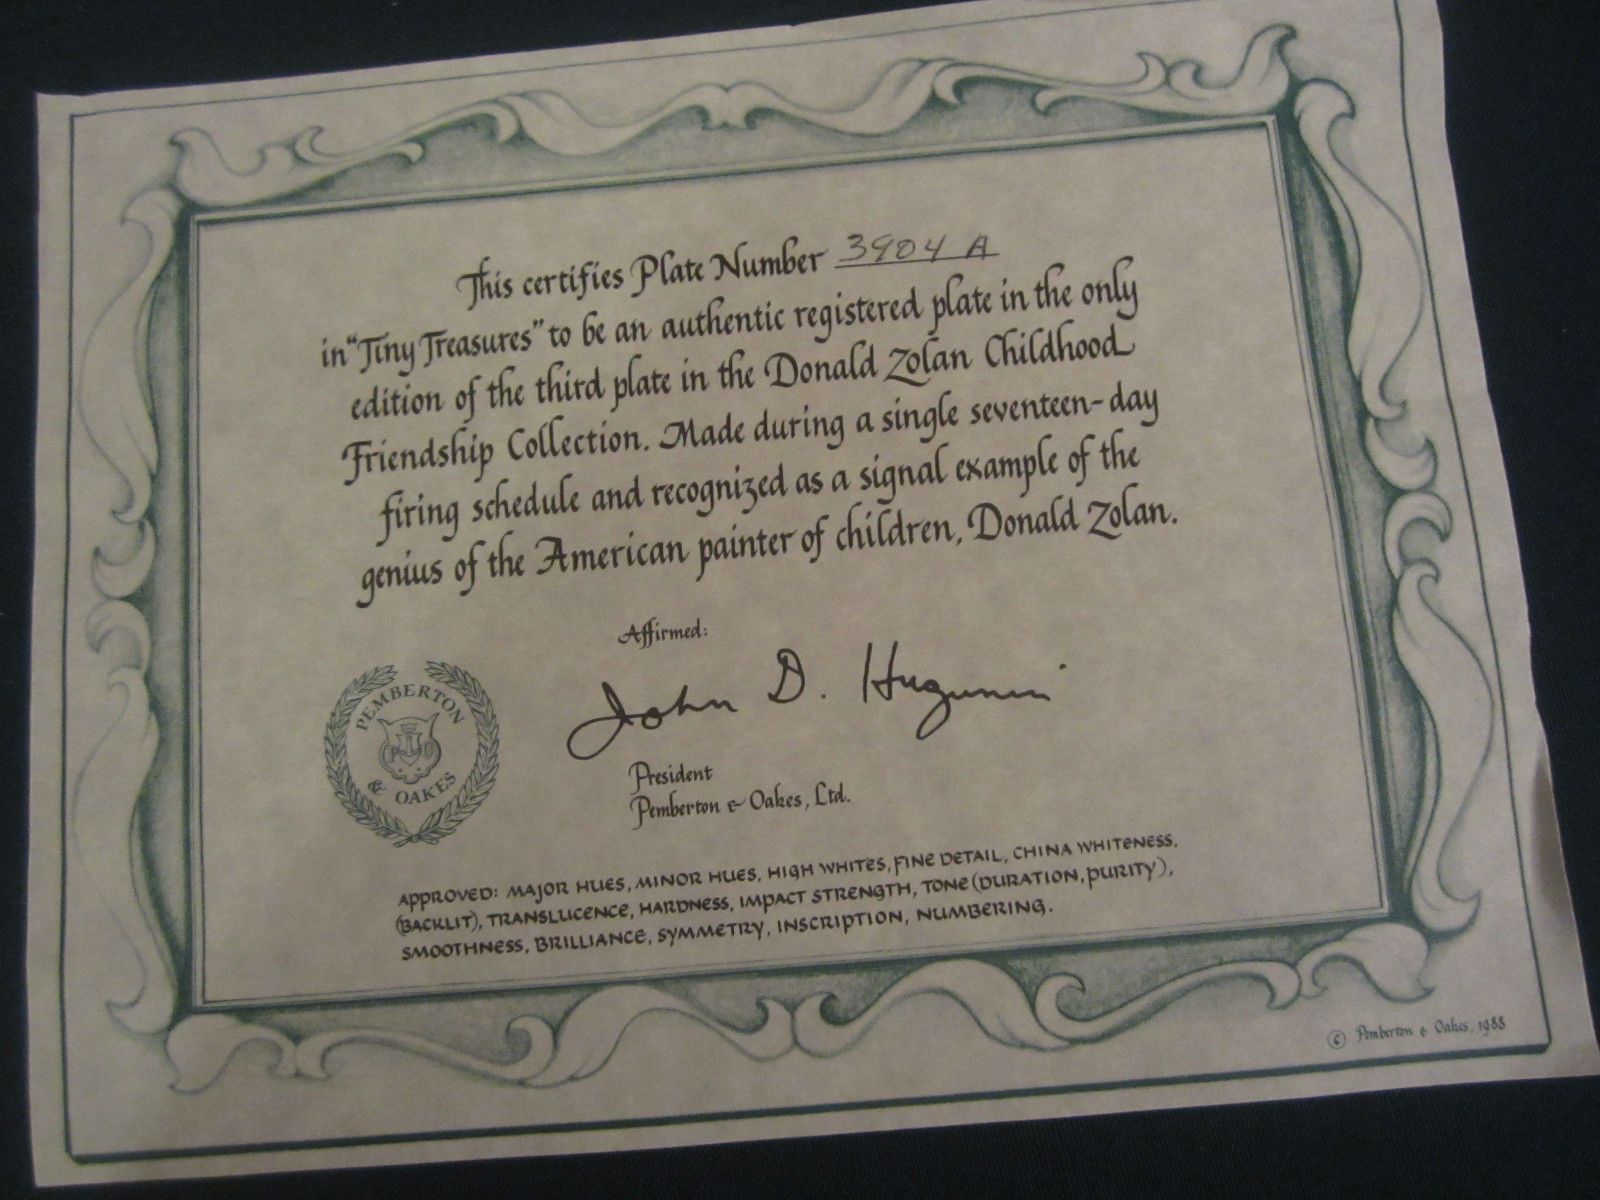 This certifies Plate Number 3904 A
in "Tiny Treasures" to be an authentic registered plate in the only
edition of the third plate in the Donald Zolan Childhood
Friendship Collection. Made during a single seventeen-day
firing schedule and recognized as a signal example of the
genius of the American painter of children, Donald Zolan.
Affirmed:
John D. Hugunin
PEMBERTON
P&O
& OAKES
President
Pemberton & Oakes, Ltd.
APPROVED: MAJOR HUES, MINOR HUES, HIGH WHITES, FINE DETAIL, CHINA WHITENESS,
(BACKLIT), TRANSLUCENCE, HARDNESS, IMPACT STRENGTH, TONE (DURATION, PURITY),
SMOOTHNESS, BRILLIANCE, SYMMETRY, INSCRIPTION, NUMBERING.
© Pemberton & Oakes, 1988